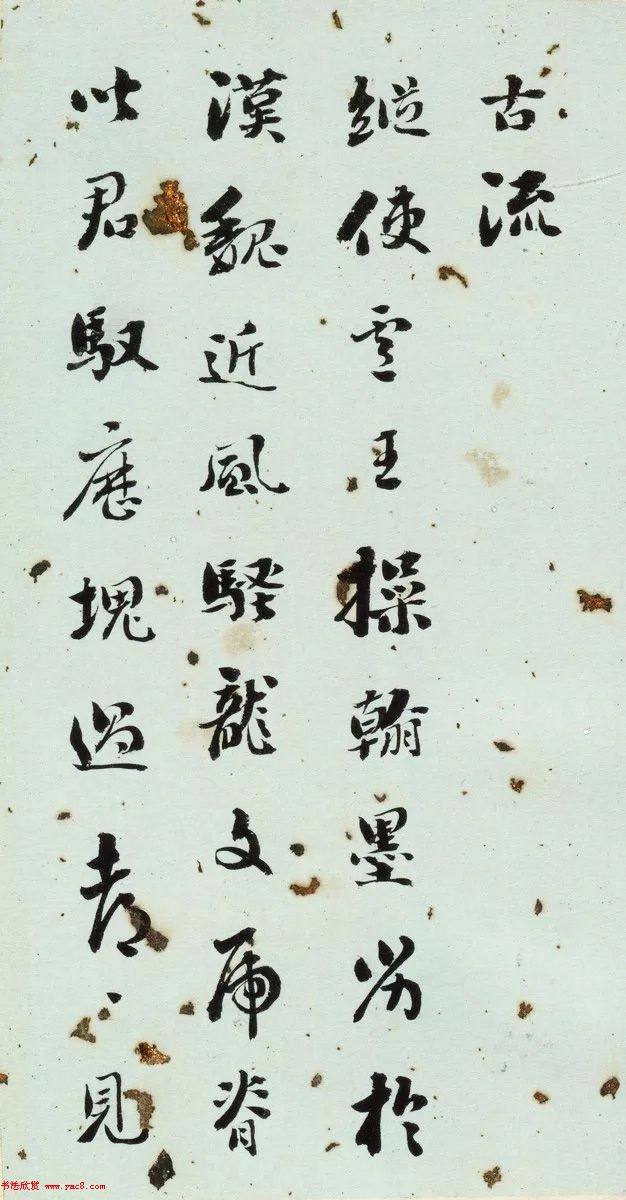 古流
縱使盧王操翰墨劣於
漢魏近風騷龍文虎脊
皆君馭歷塊過都見
书法欣赏 www.yac8.com